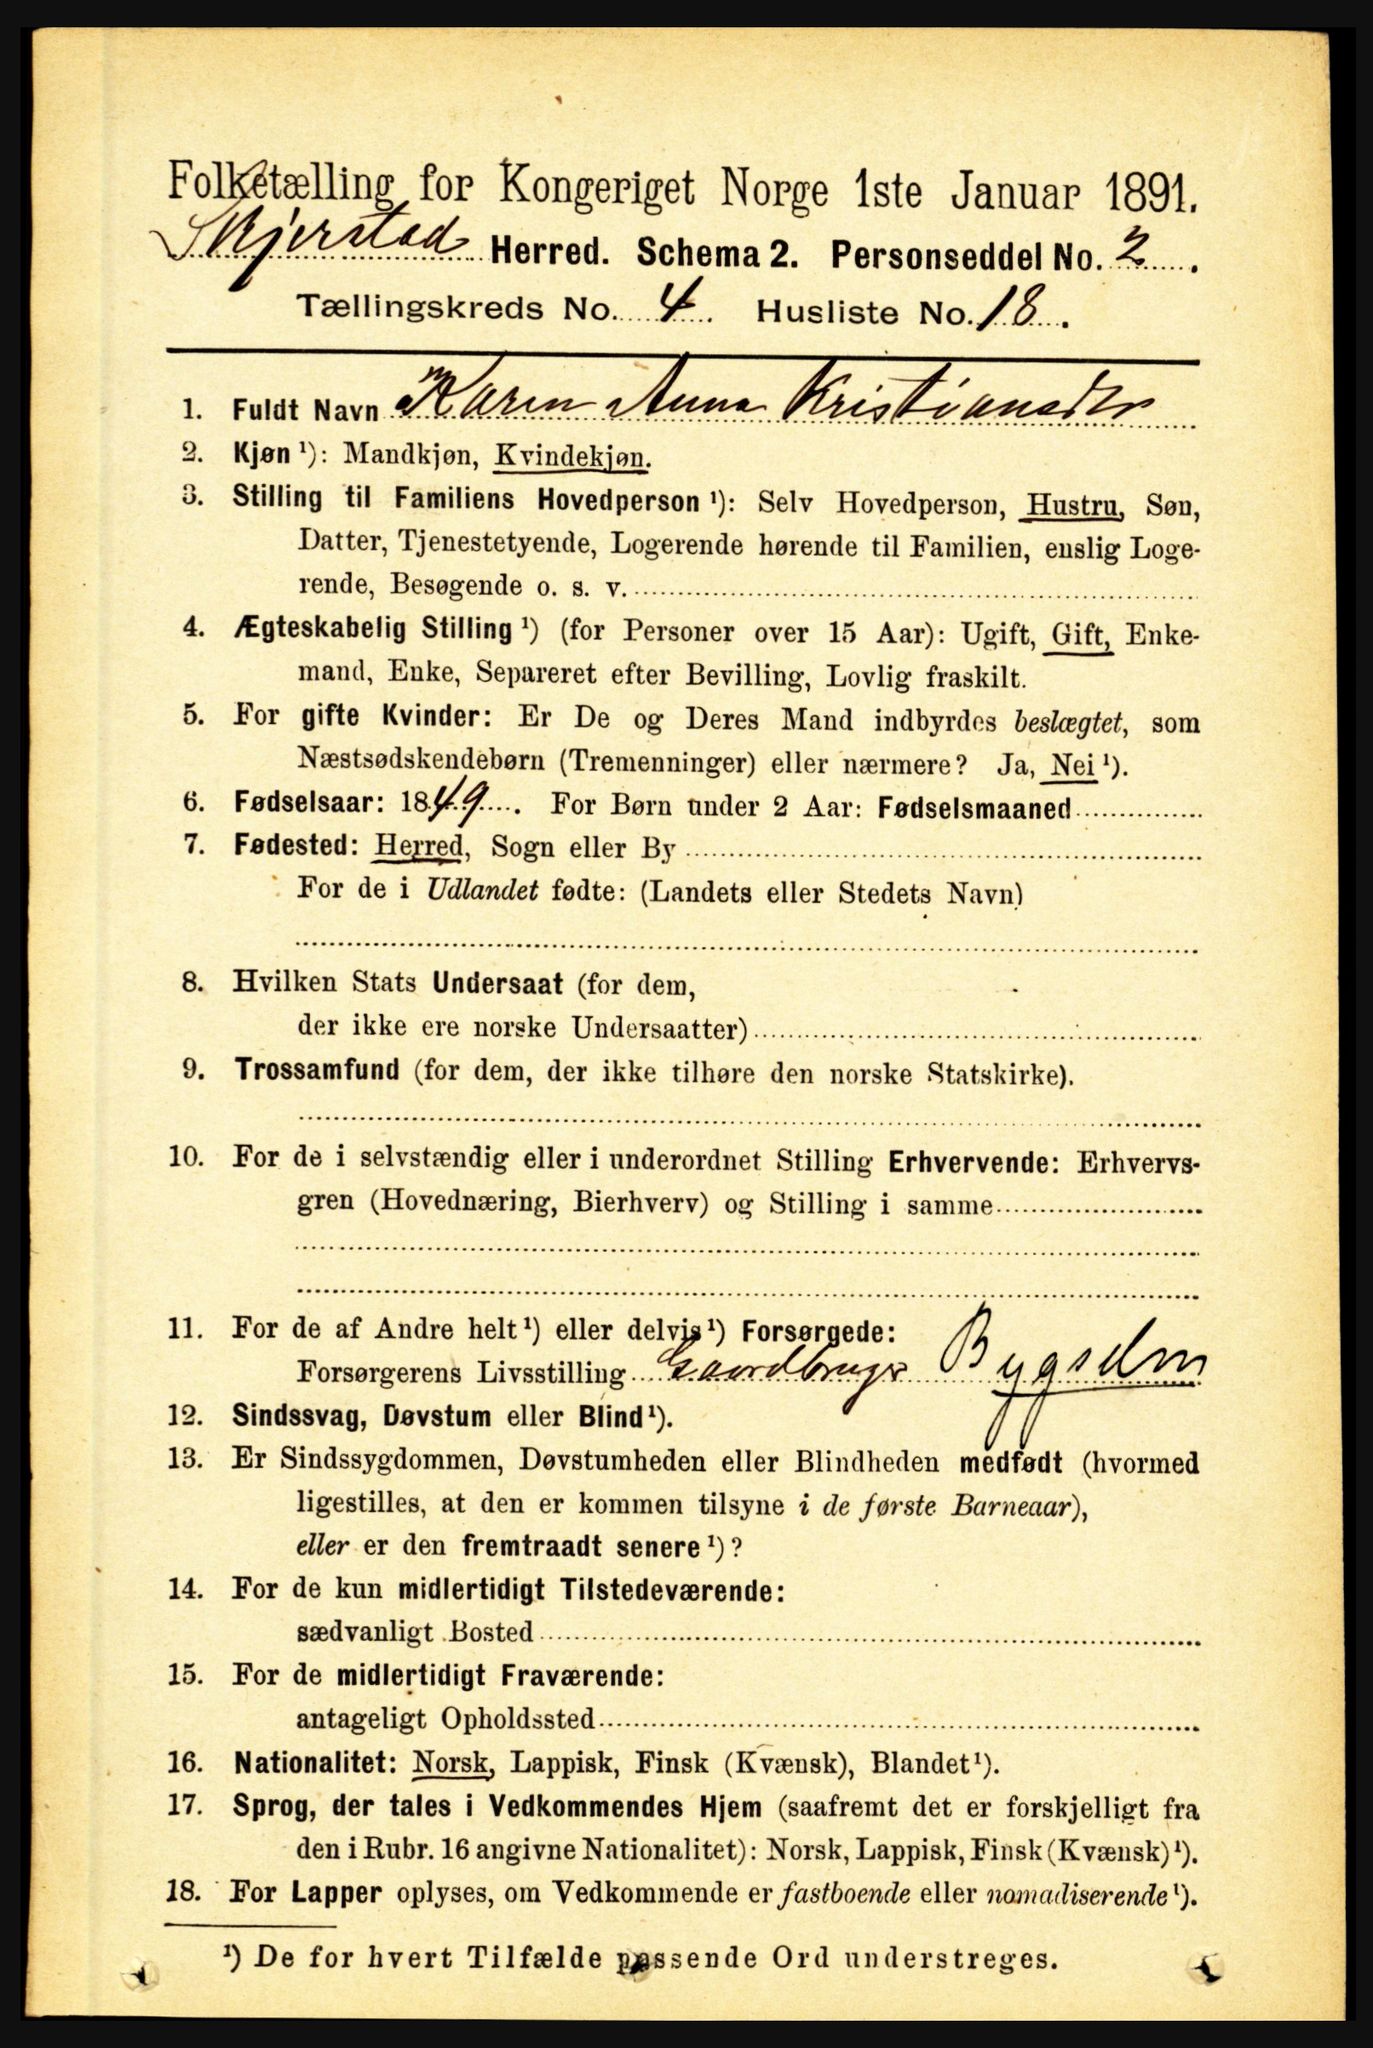 Folketælling for Kongeriget Norge 1ste Januar 1891.
Skjerstad Herred. Schema 2. Personseddel No. 2.
Tællingskreds No. 4. Husliste No. 18.
1. Fuldt Navn Karen Anna Kristiansdtr
2. Kjøn ¹): Mandkjøn, Kvindekjøn.
3. Stilling til Familiens Hovedperson ¹): Selv Hovedperson, Hustru, Søn,
Datter, Tjenestetyende, Logerende hørende til Familien, enslig Loge-
rende, Besøgende o. s. v.
4. Ægteskabelig Stilling ¹) (for Personer over 15 Aar): Ugift, Gift, Enke-
mand, Enke, Separeret efter Bevilling, Lovlig fraskilt.
5. For gifte Kvinder: Er De og Deres Mand indbyrdes beslægtet, som
Næstsødskendebørn (Tremenninger) eller nærmere? Ja, Nei ¹).
6. Fødselsaar: 1849. For Børn under 2 Aar: Fødselsmaaned
7. Fødested: Herred, Sogn eller By
For de i Udlandet fødte: (Landets eller Stedets Navn)
8. Hvilken Stats Undersaat (for dem,
der ikke ere norske Undersaatter)
9. Trossamfund (for dem, der ikke tilhøre den norske Statskirke).
10. For de i selvstændig eller i underordnet Stilling Erhvervende: Erhvervs-
gren (Hovednæring, Bierhverv) og Stilling i samme
11. For de af Andre helt ¹) eller delvis ¹) Forsørgede:
Forsørgerens Livsstilling Gaardbruger
12. Sindssvag, Døvstum eller Blind ¹).
13. Er Sindssygdommen, Døvstumheden eller Blindheden medfødt (hvormed
ligestilles, at den er kommen tilsyne i de første Barneaar),
eller er den fremtraadt senere ¹)?
14. For de kun midlertidigt Tilstedeværende:
sædvanligt Bosted
15. For de midlertidigt Fraværende:
antageligt Opholdssted
16. Nationalitet: Norsk, Lappisk, Finsk (Kvænsk), Blandet ¹).
17. Sprog, der tales i Vedkommendes Hjem (saafremt det er forskjelligt fra
den i Rubr. 16 angivne Nationalitet): Norsk, Lappisk, Finsk (Kvænsk) ¹).
18. For Lapper oplyses, om Vedkommende er fastboende eller nomadiserende ¹).
¹) De for hvert Tilfælde passende Ord understreges.